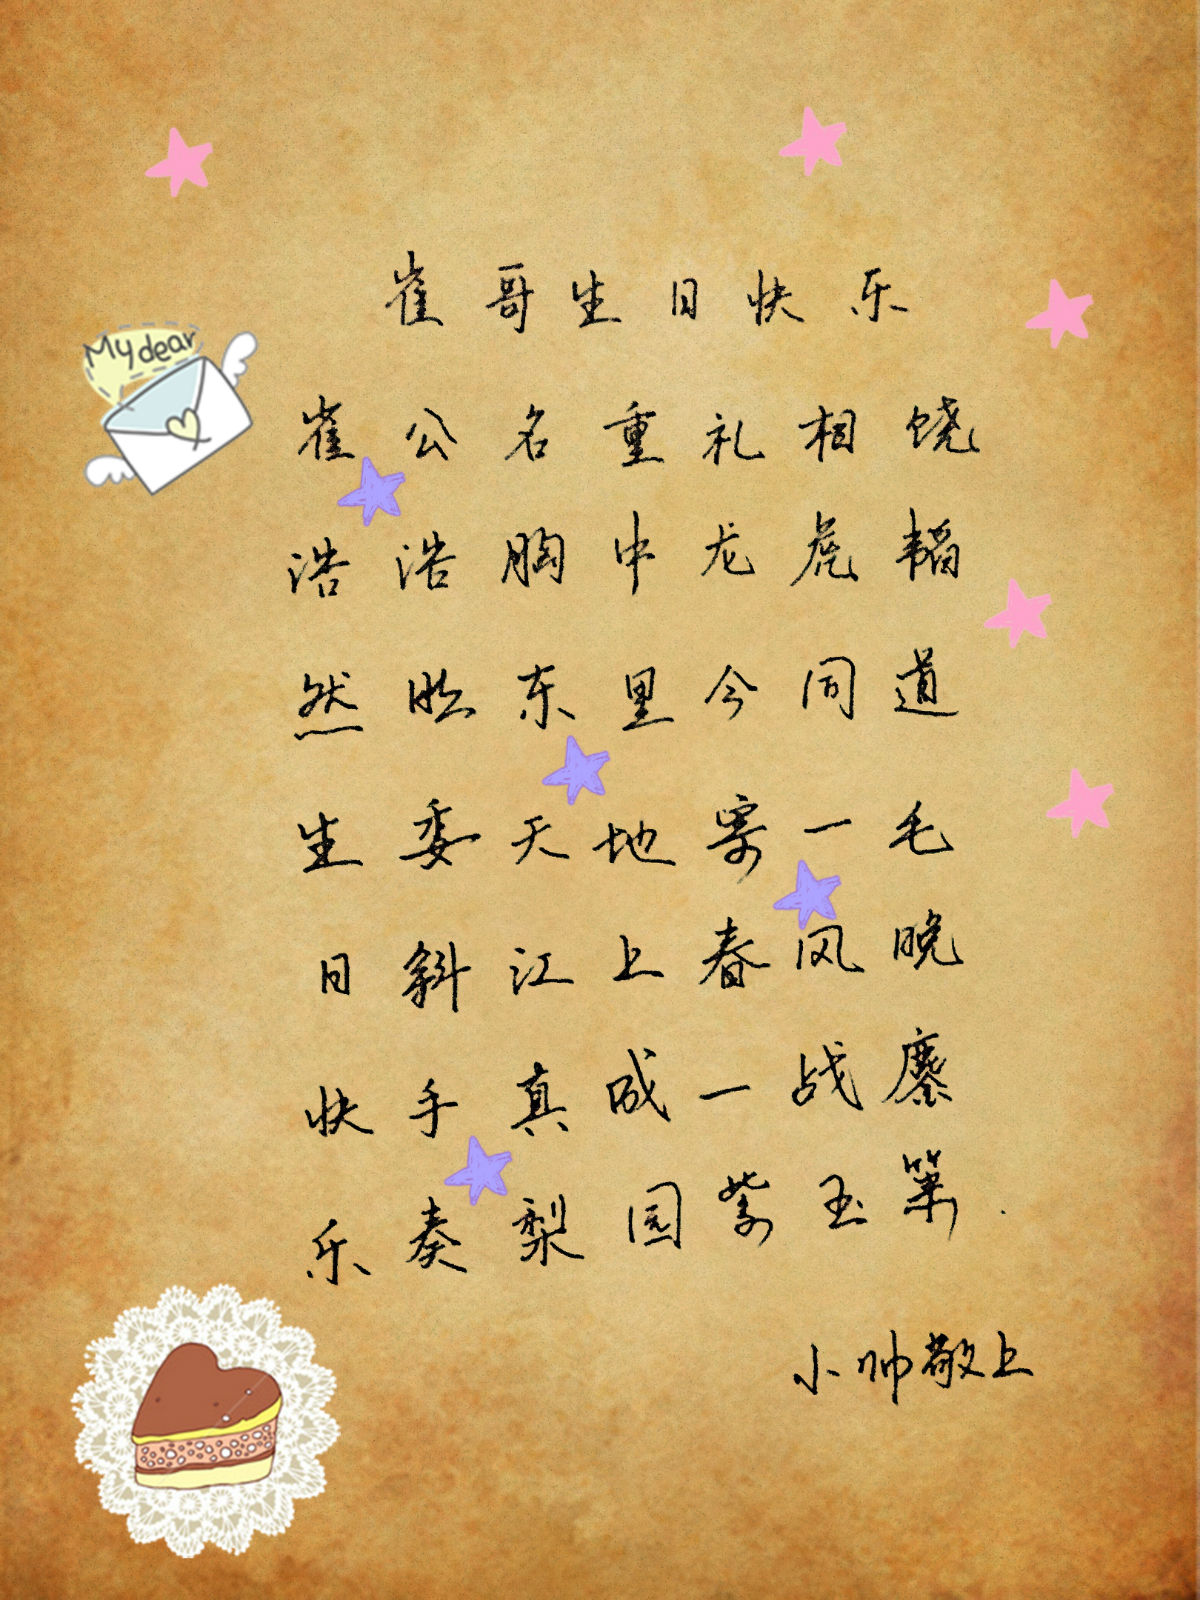 崔哥生日快乐
My dear
崔公名重礼相饶
浩浩胸中龙虎韬
然 东里今同道
生委天地寄一毛
日斜江上春风晚
快手真成一战鏖
乐奏梨园紫玉箫
小帅敬上